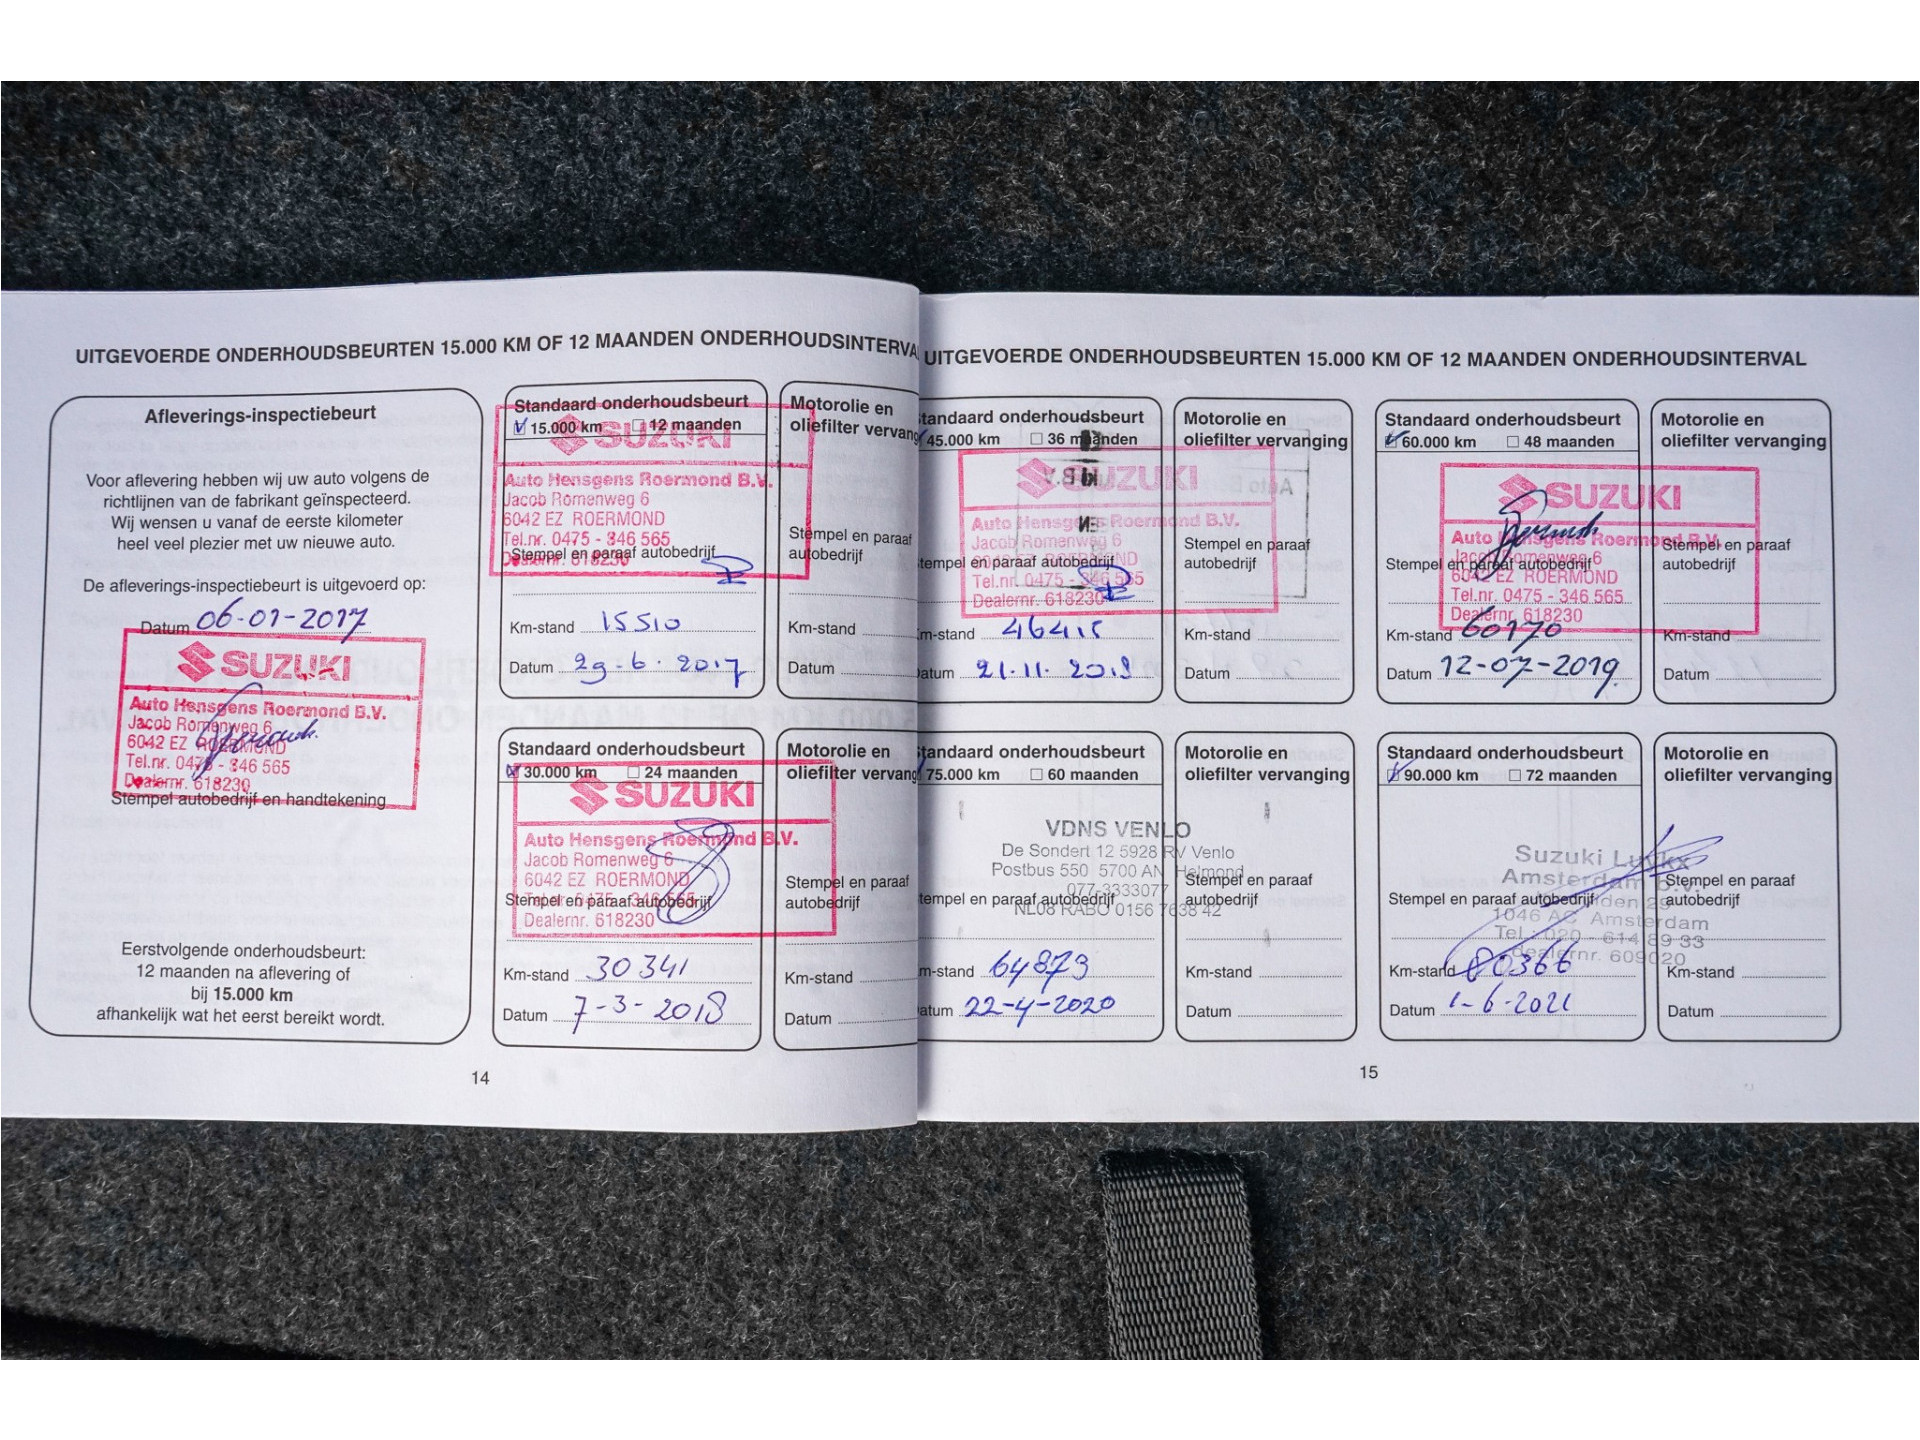 UITGEVOERDE ONDERHOUDSBEURTEN 15.000 KM OF 12 MAANDEN ONDERHOUDSINTERVA
Afleverings-inspectiebeurt
Voor aflevering hebben wij uw auto volgens de
richtlijnen van de fabrikant geïnspecteerd.
Wij wensen u vanaf de eerste kilometer
heel veel plezier met uw nieuwe auto.
De afleverings-inspectiebeurt is uitgevoerd op:
Datum 06-01-2017
SUZUKI
Auto Hensgens Roermond B.V.
Jacob Romenweg 6
6042 EZ ROERMOND
Tel.nr. 0475 - 346 565
Dealernr. 618230
Stempel autobedrijf en handtekening
Eerstvolgende onderhoudsbeurt:
12 maanden na aflevering of
bij 15.000 km
afhankelijk wat het eerst bereikt wordt.
Standaard onderhoudsbeurt
15.000 km 12 maanden
SUZUKI
Auto Hensgens Roermond B.V.
Jacob Romenweg 6
6042 EZ ROERMOND
Tel.nr. 0475 - 346 565
Stempel en paraaf autobedrijf
Dealernr. 618230
Km-stand 15510
Datum 29-6-2017
Motorolie en
oliefilter vervang
Stempel en paraaf
autobedrijf
Km-stand
Datum
Standaard onderhoudsbeurt
30.000 km 24 maanden
SUZUKI
Auto Hensgens Roermond B.V.
Jacob Romenweg 6
6042 EZ ROERMOND
Tel.nr. 0475 - 346 565
Stempel en paraaf autobedrijf
Dealernr. 618230
Km-stand 30341
Datum 7-3-2018
Motorolie en
oliefilter vervang
Stempel en paraaf
autobedrijf
Km-stand
Datum
14
UITGEVOERDE ONDERHOUDSBEURTEN 15.000 KM OF 12 MAANDEN ONDERHOUDSINTERVAL
tandaard onderhoudsbeurt
45.000 km 36 maanden
SUZUKI
Auto Hensgens Roermond B.V.
Jacob Romenweg 6
6042 EZ ROERMOND
tempel en paraaf autobedrijf
Tel.nr. 0475 - 346 565
Dealernr. 618230
m-stand 46415
atum 21.11.2018
Motorolie en
oliefilter vervanging
Stempel en paraaf
autobedrijf
Km-stand
Datum
Standaard onderhoudsbeurt
60.000 km 48 maanden
SUZUKI
Auto Hensgens Roermond B.V.
Jacob Romenweg 6
Stempel en paraaf autobedrijf
6042 EZ ROERMOND
Tel.nr. 0475 - 346 565
Dealernr. 618230
Km-stand 60170
Datum 12-07-2019
Motorolie en
oliefilter vervanging
Stempel en paraaf
autobedrijf
Km-stand
Datum
tandaard onderhoudsbeurt
75.000 km 60 maanden
VDNS VENLO
De Sondert 12 5928 RV Venlo
Postbus 550 5700 AN Helmond
077-3333077
tempel en paraaf autobedrijf
NL08 RABO 0156 7638 42
m-stand 64873
atum 22-4-2020
Motorolie en
oliefilter vervanging
Stempel en paraaf
autobedrijf
Km-stand
Datum
Standaard onderhoudsbeurt
90.000 km 72 maanden
Suzuki Luykx
Amsterdam b.v.
Stempel en paraaf autobedrijf
1046 AC Amsterdam
Tel.: 020 - 614 89 33
dealernr. 609020
Km-stand 80366
Datum 1-6-2021
Motorolie en
oliefilter vervanging
Stempel en paraaf
autobedrijf
Km-stand
Datum
15